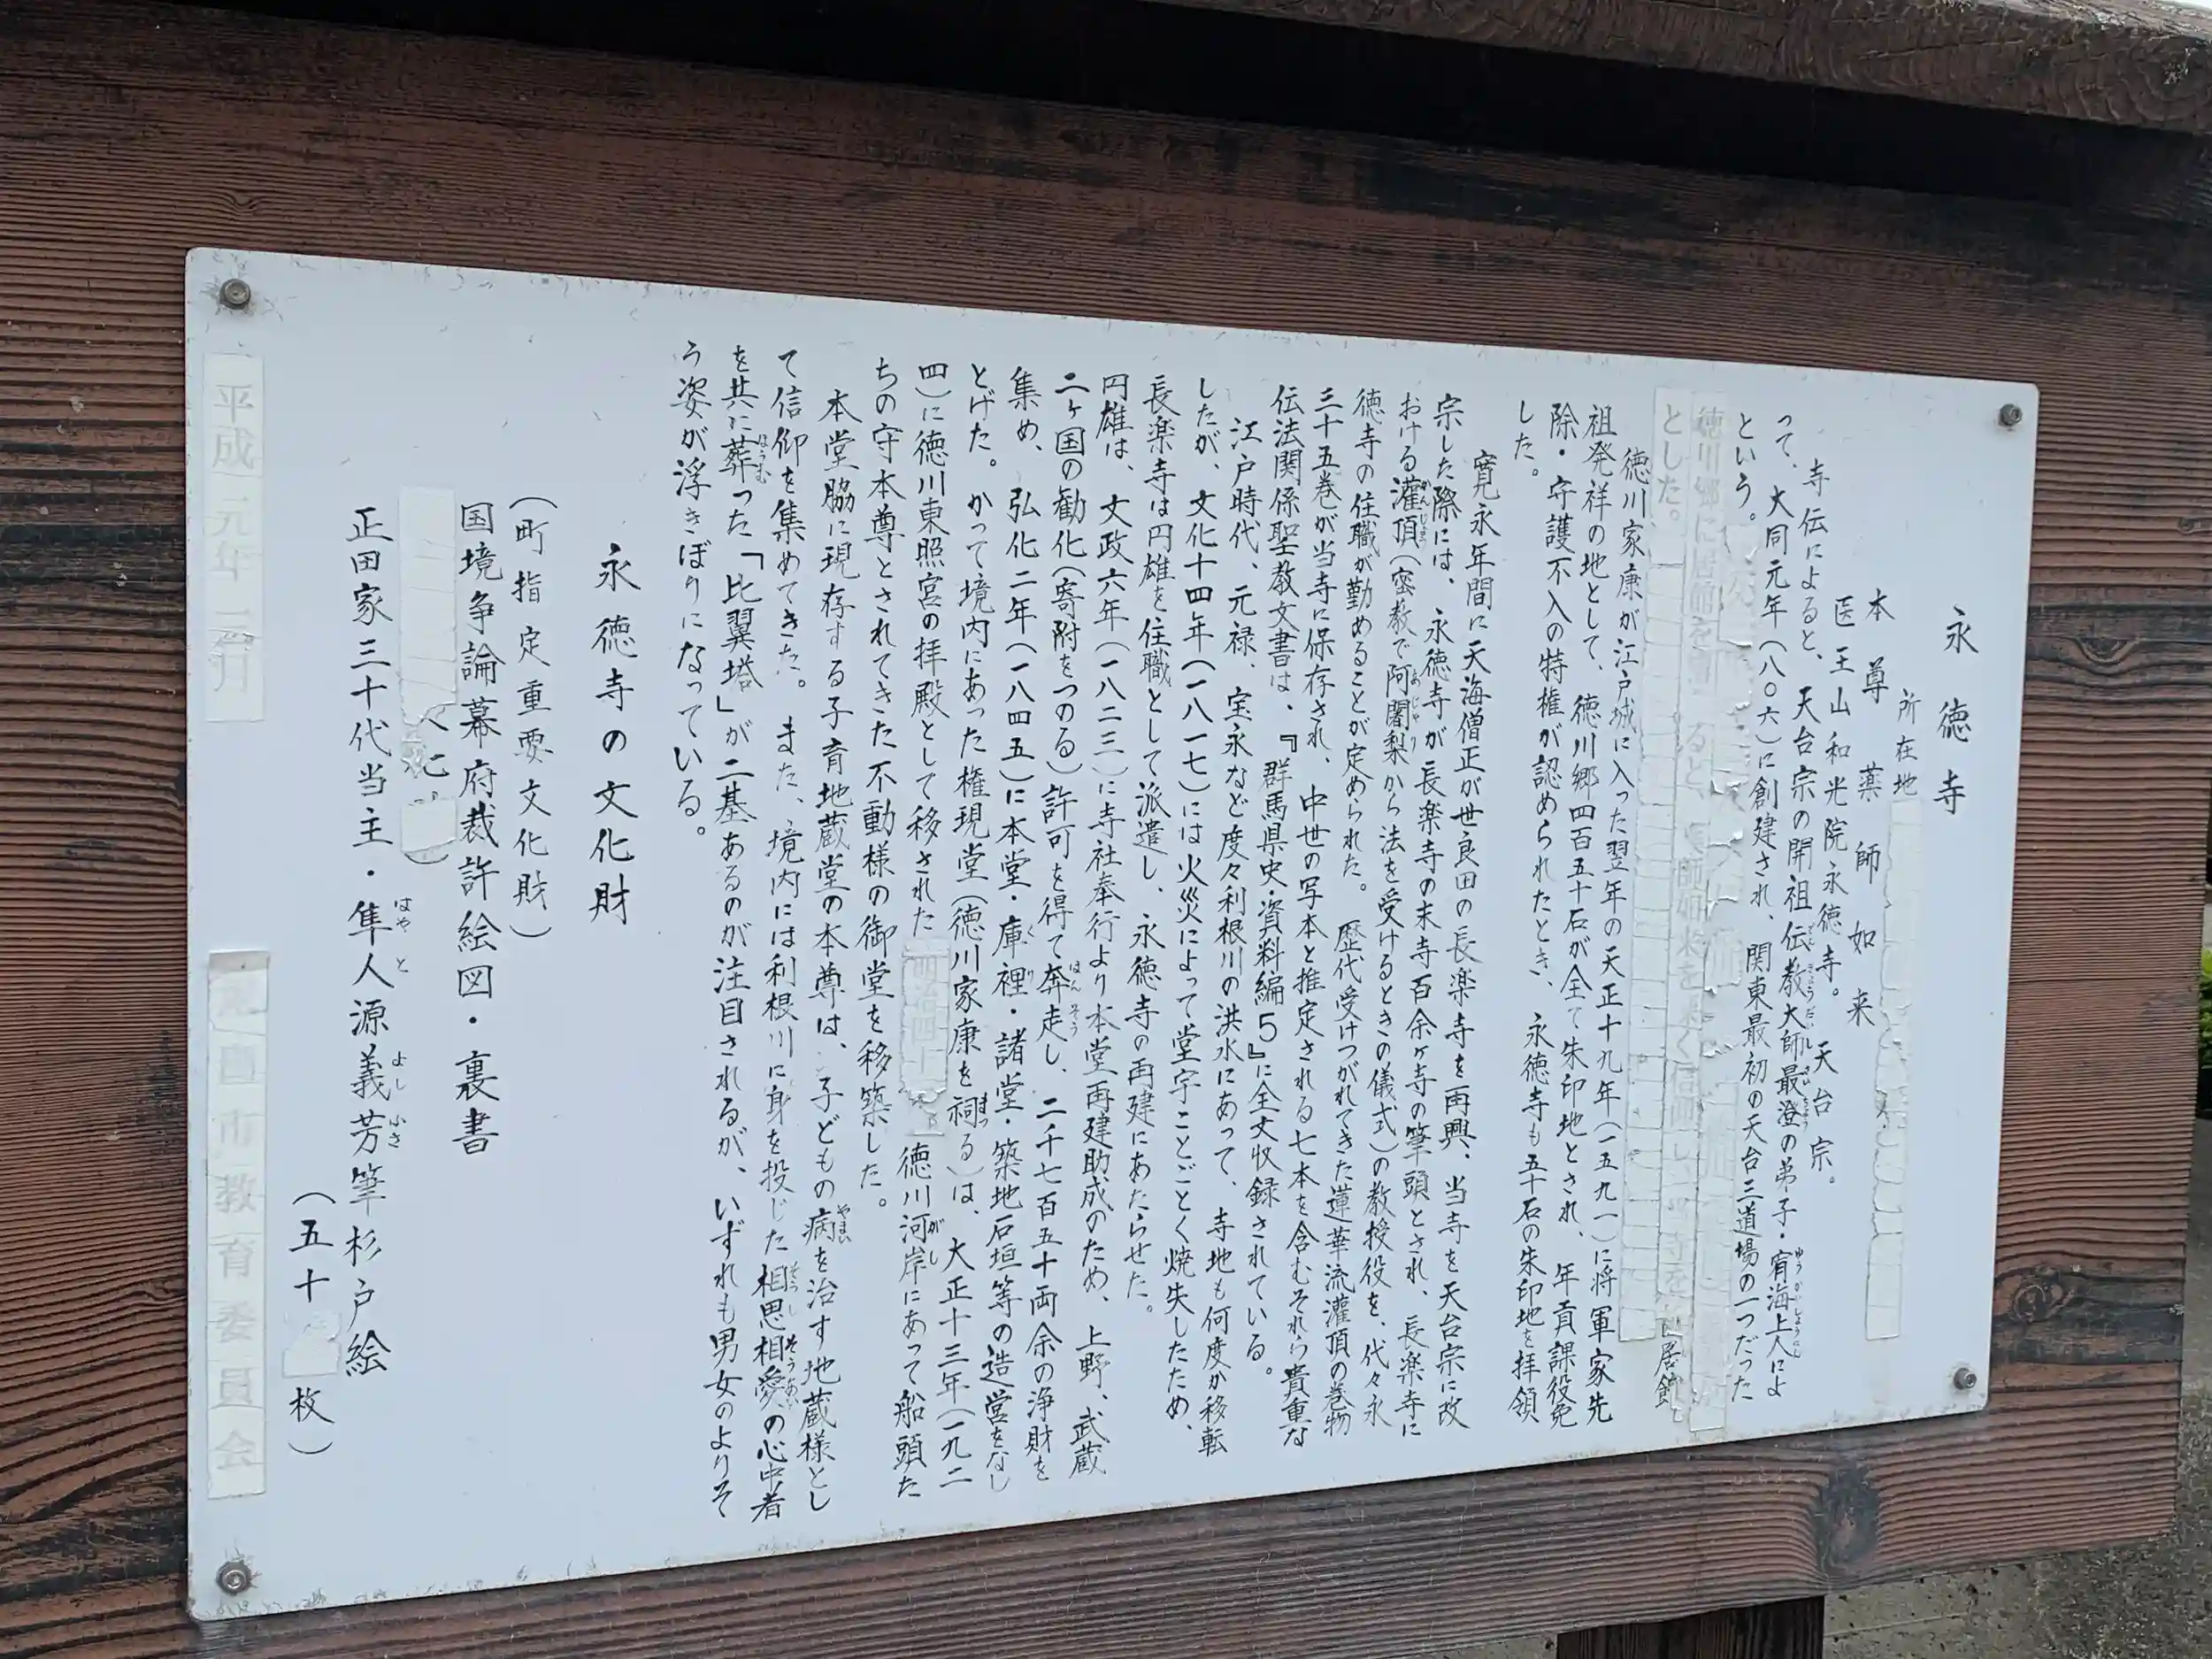 永徳寺
所在地
本尊 薬師如来
医王山和光院永徳寺。天台宗。
寺伝によると、天台宗の開祖伝教大師最澄の弟子・宥海上人によ
って、大同元年(八〇六)に創建され、関東最初の天台三道場の一つだった
という。
徳川郷に居館を
とした。
居館
徳川家康が江戸城に入った翌年の天正十九年(一五九一)に将軍家先
祖発祥の地として、徳川郷四百五十石が全て朱印地とされ、年貢課役免
除・守護不入の特権が認められたとき、永徳寺も五十石の朱印地を拝領
した。
寛永年間に天海僧正が世良田の長楽寺を再興、当寺を天台宗に改
宗した際には、永徳寺が長楽寺の末寺百余ヶ寺の筆頭とされ、長楽寺に
おける灌頂(密教で阿闍梨から法を受けるときの儀式)の教授役を、代々永
徳寺の住職が勤めることが定められた。歴代受けつがれてきた蓮華流灌頂の巻物
三十五巻が当寺に保存され、中世の写本と推定される七本を含むそれら貴重な
伝法関係聖教文書は、『群馬県史・資料編5』に全文収録されている。
江戸時代、元禄、宝永など度々利根川の洪水にあって、寺地も何度か移転
したが、文化十四年(一八一七)には火災によって堂宇ことごとく焼失したため、
長楽寺は円雄を住職として派遣し、永徳寺の再建にあたらせた。
円雄は、文政六年(一八二三)に寺社奉行より本堂再建助成のため、上野、武蔵
二ヶ国の勧化(寄附をつのる)許可を得て奔走し、二千七百五十両余の浄財を
集め、弘化二年(一八四五)に本堂・庫裡・諸堂・築地石垣等の造営をなし
とげた。かつて境内にあった権現堂(徳川家康を祠る)は、大正十三年(一九二
四)に徳川東照宮の拝殿として移された 徳川河岸にあって船頭た
ちの守本尊とされてきた不動様の御堂を移築した。
本堂脇に現存する子育地蔵堂の本尊は、子どもの病を治す地蔵様とし
て信仰を集めてきた。また、境内には利根川に身を投じた相思相愛の心中者
を共に葬った「比翼塔」が二基あるのが注目されるが、いずれも男女のよりそ
う姿が浮きぼりになっている。
永徳寺の文化財
(町指定重要文化財)
国境争論幕府裁許絵図・裏書
正田家三十代当主・隼人源義芳筆杉戸絵
(五十 枚)
平成元年 月
市教育委員会